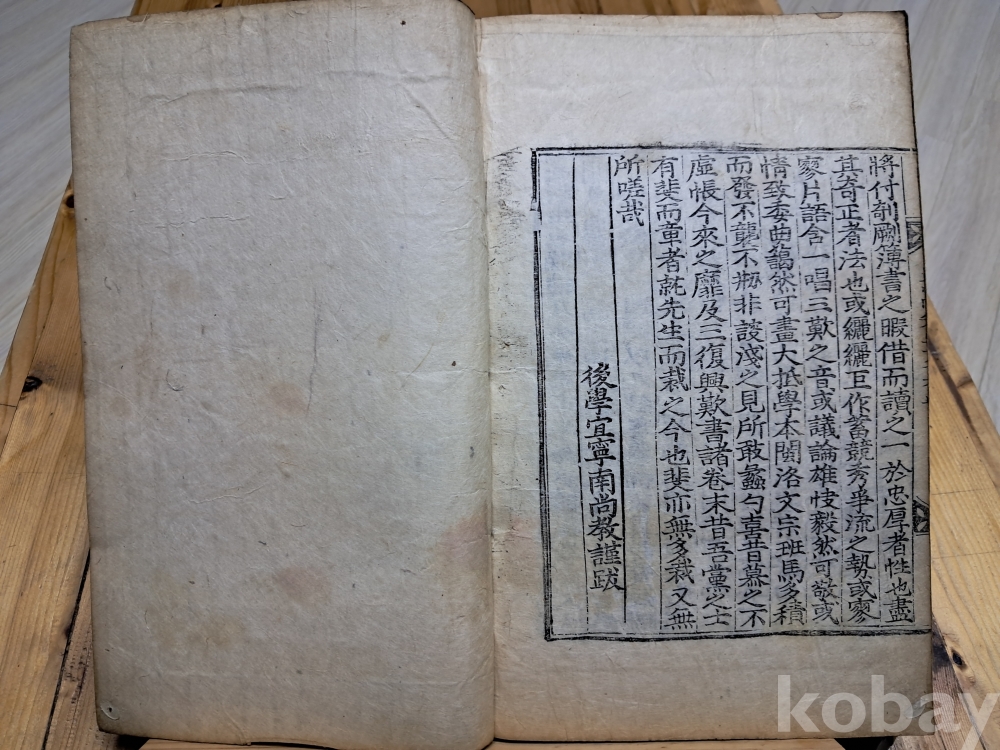 將付剞劂簿書之暇借而讀之一 於忠厚者性也盡
其奇正者法也或纚纚巨作蓄競秀爭流之勢或寥
寥片語含一唱三歎之音或議論雄快毅然可敬或
情致委曲藹然可畫大抵學本閩洛文宗班馬多積
而發不襲不粉非諓淺之見所敢蠡勺喜昔慕之不
虛悵今來之靡及三復興歎書諸卷末昔吾黨之士
有斐而章者就先生而裁之今也斐亦無多裁又無
所嗟哉
後學宜寧南尚敎謹跋
kobay